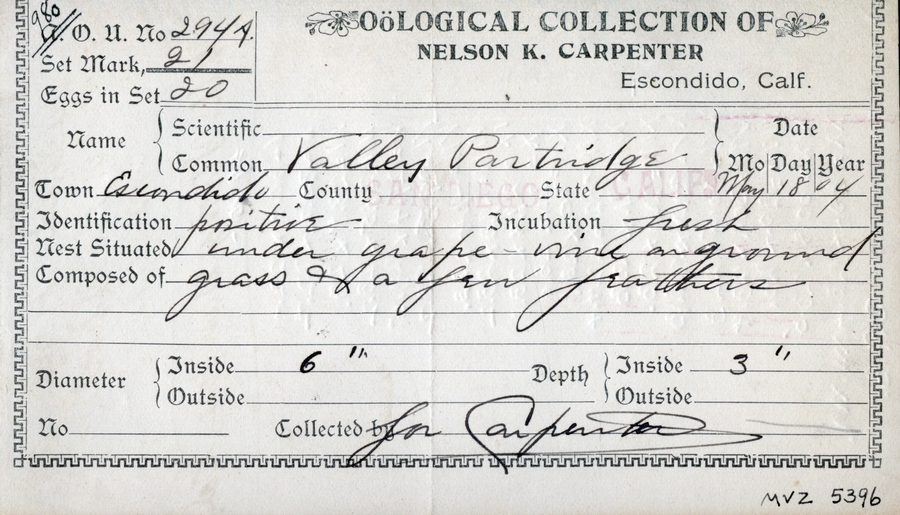 980
A. O. U. No 294a.
OÖLOGICAL COLLECTION OF
NELSON K. CARPENTER
Escondido, Calf.
Set Mark, 21
Eggs in Set 20
Name Scientific
Common Valley Partridge
Date
Mo Day Year
May 18 04
Town Escondido County SAN DIEGO State CALIF
Identification positive Incubation fresh
Nest Situated under grape-vine on ground
Composed of grass & a few feathers
Diameter Inside 6 " Depth Inside 3 "
Outside Outside
No Collected by Carpenter
MVZ 5396